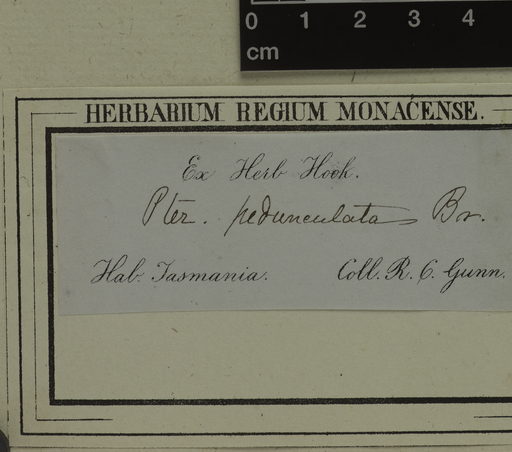 0 1 2 3 4
cm
HERBARIUM REGIUM MONACENSE.
Ex Herb Hook.
Pter. pedunculata Br.
Hab. Tasmania. Coll. R. C. Gunn.